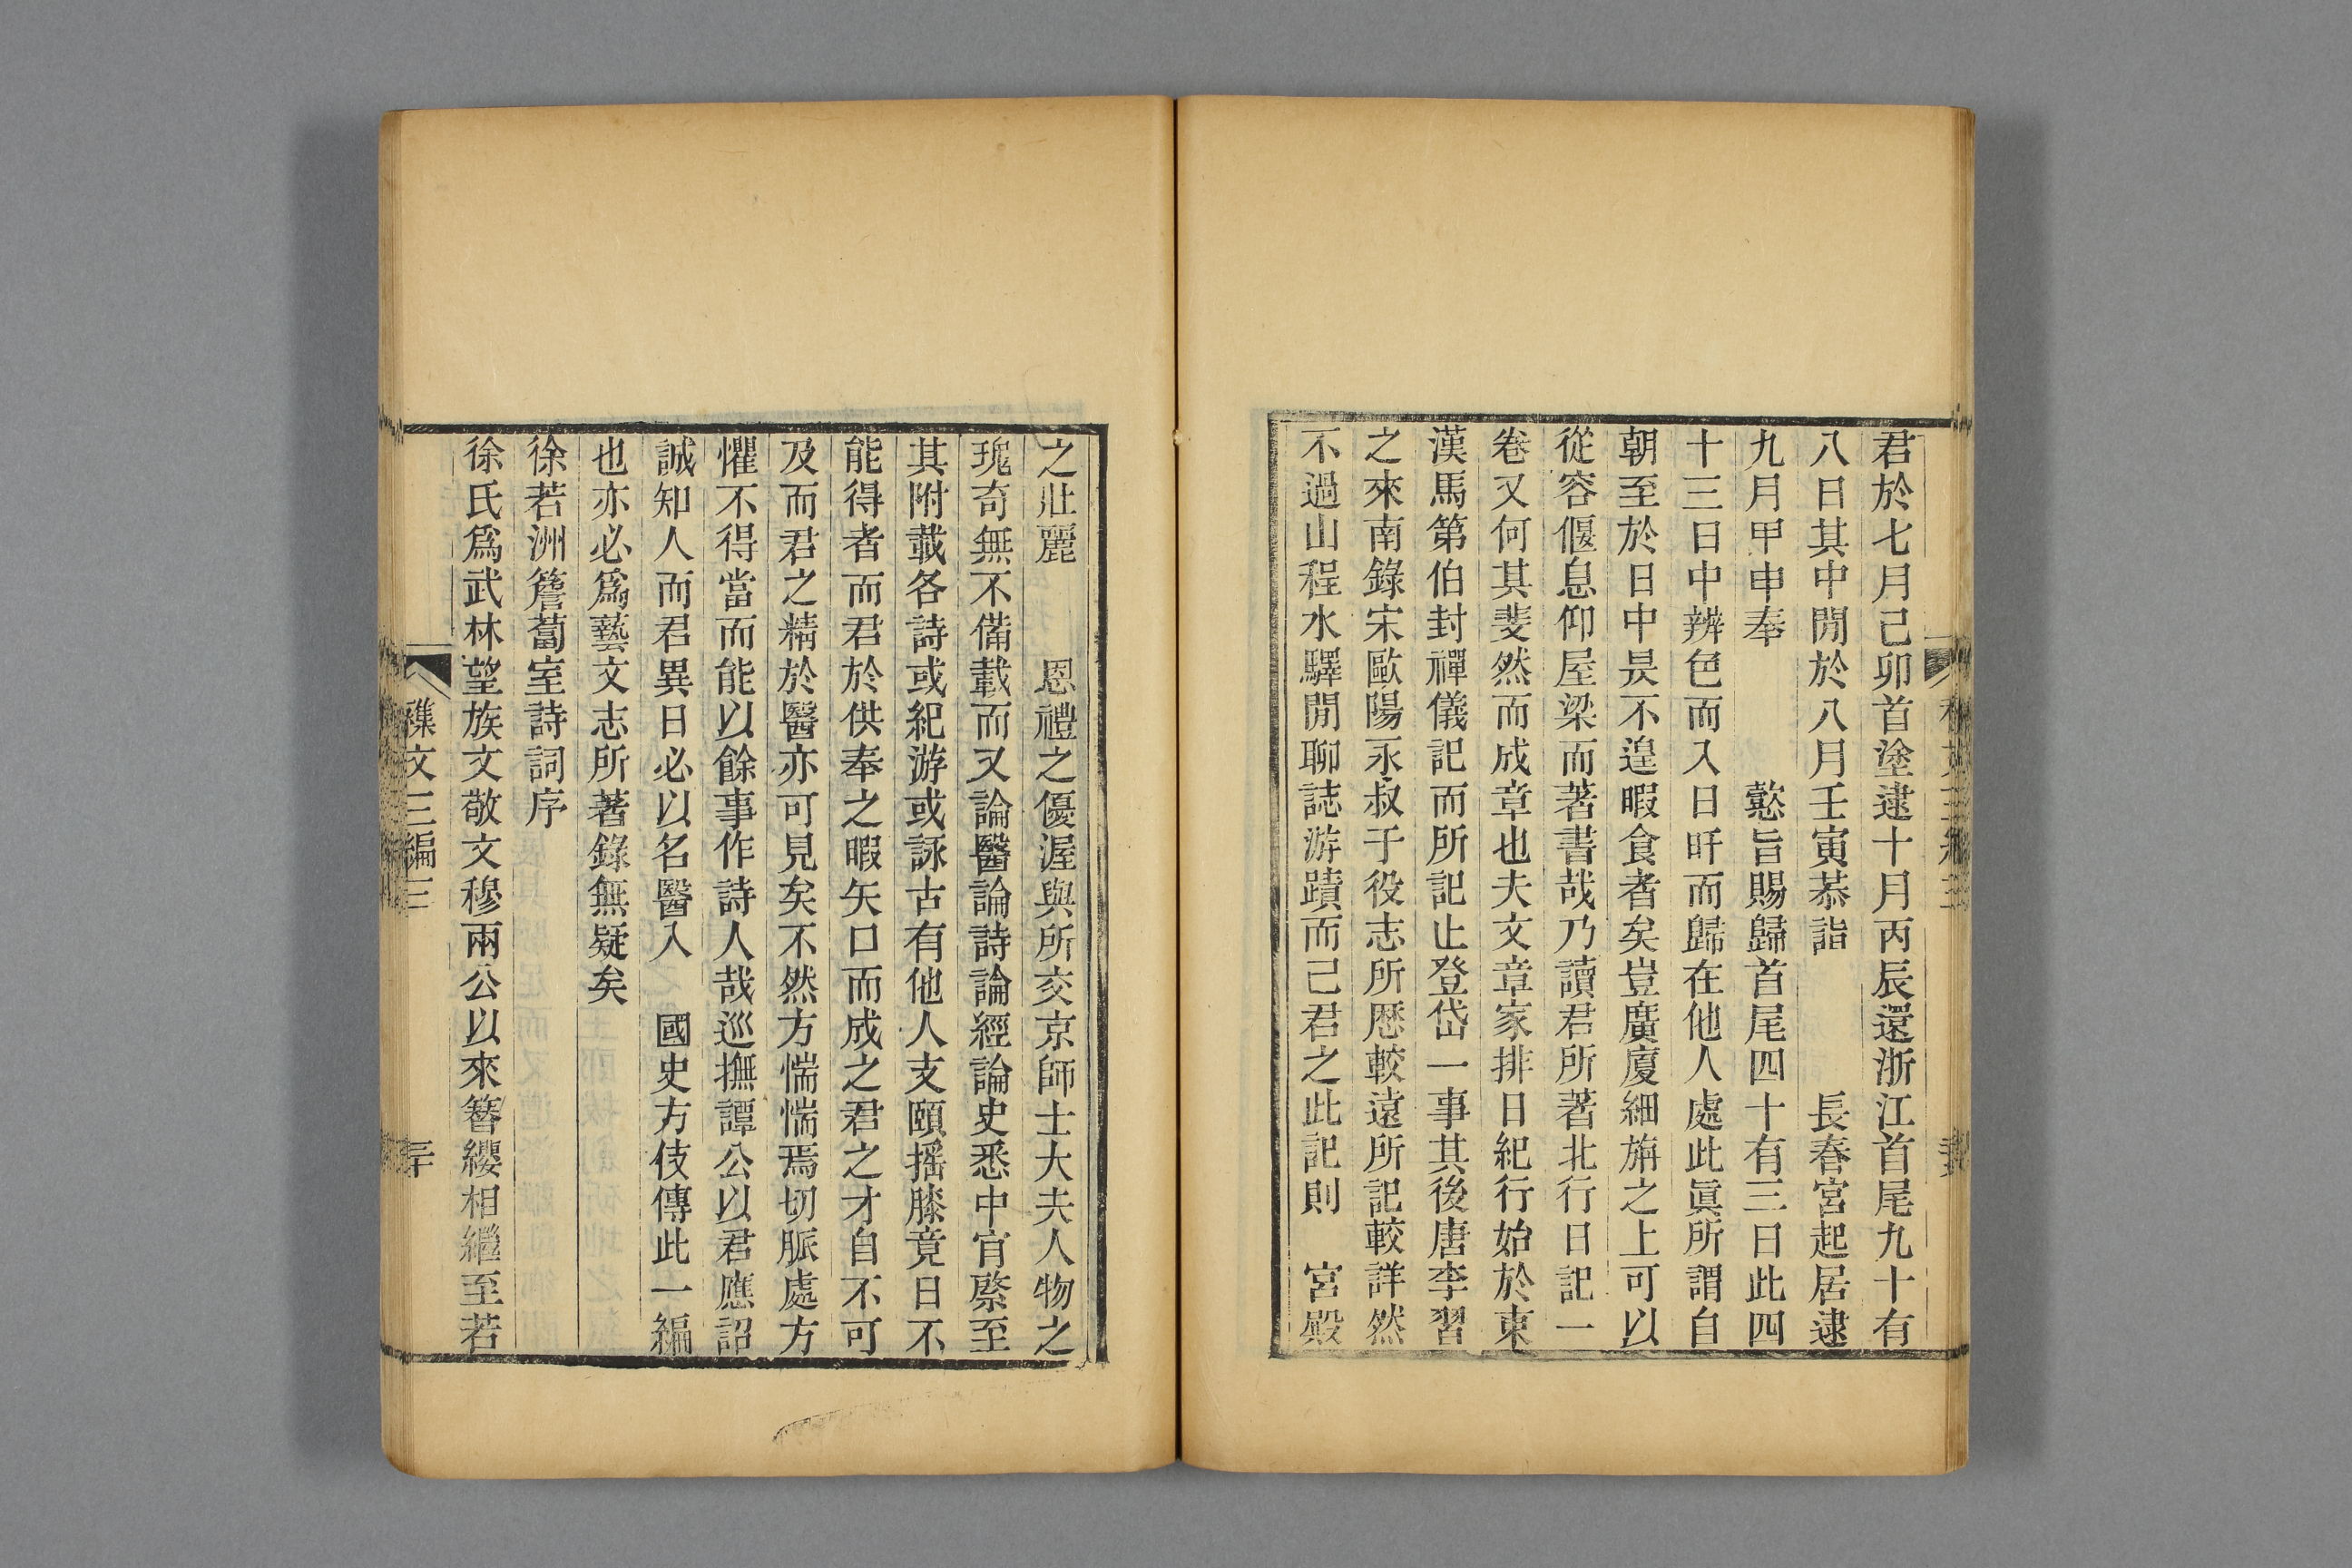 君於七月己卯首塗逮十月丙辰還浙江首尾九十有
八日其中閒於八月壬寅恭詣　　　長春宮起居逮
九月甲申奉　　　懿旨賜歸首尾四十有三日此四
十三日中辨色而入日旰而歸在他人處此眞所謂自
朝至於日中昃不遑暇食者矣豈廣廈細旃之上可以
從容偃息仰屋梁而著書哉乃讀君所著北行日記一
卷又何其斐然而成章也夫文章家排日紀行始於東
漢馬第伯封禪儀記而所記止登岱一事其後唐李習
之來南錄宋歐陽永叔于役志所歷較遠所記較詳然
不過山程水驛閒聊誌游蹟而已君之此記則　宮殿
之壯麗　　恩禮之優渥與所交京師士大夫人物之
瑰奇無不備載而又論醫論詩論經論史悉中肎綮至
其附載各詩或紀游或詠古有他人支頤搖膝竟日不
能得者而君於供奉之暇矢口而成之君之才自不可
及而君之精於醫亦可見矣不然方惴惴焉切脈處方
懼不得當而能以餘事作詩人哉巡撫譚公以君應詔
誠知人而君異日必以名醫入　國史方伎傳此一編
也亦必爲藝文志所著錄無疑矣
徐若洲簷蔔室詩詞序
徐氏爲武林望族文敬文穆兩公以來簪纓相繼至若
襍文三編三
三十